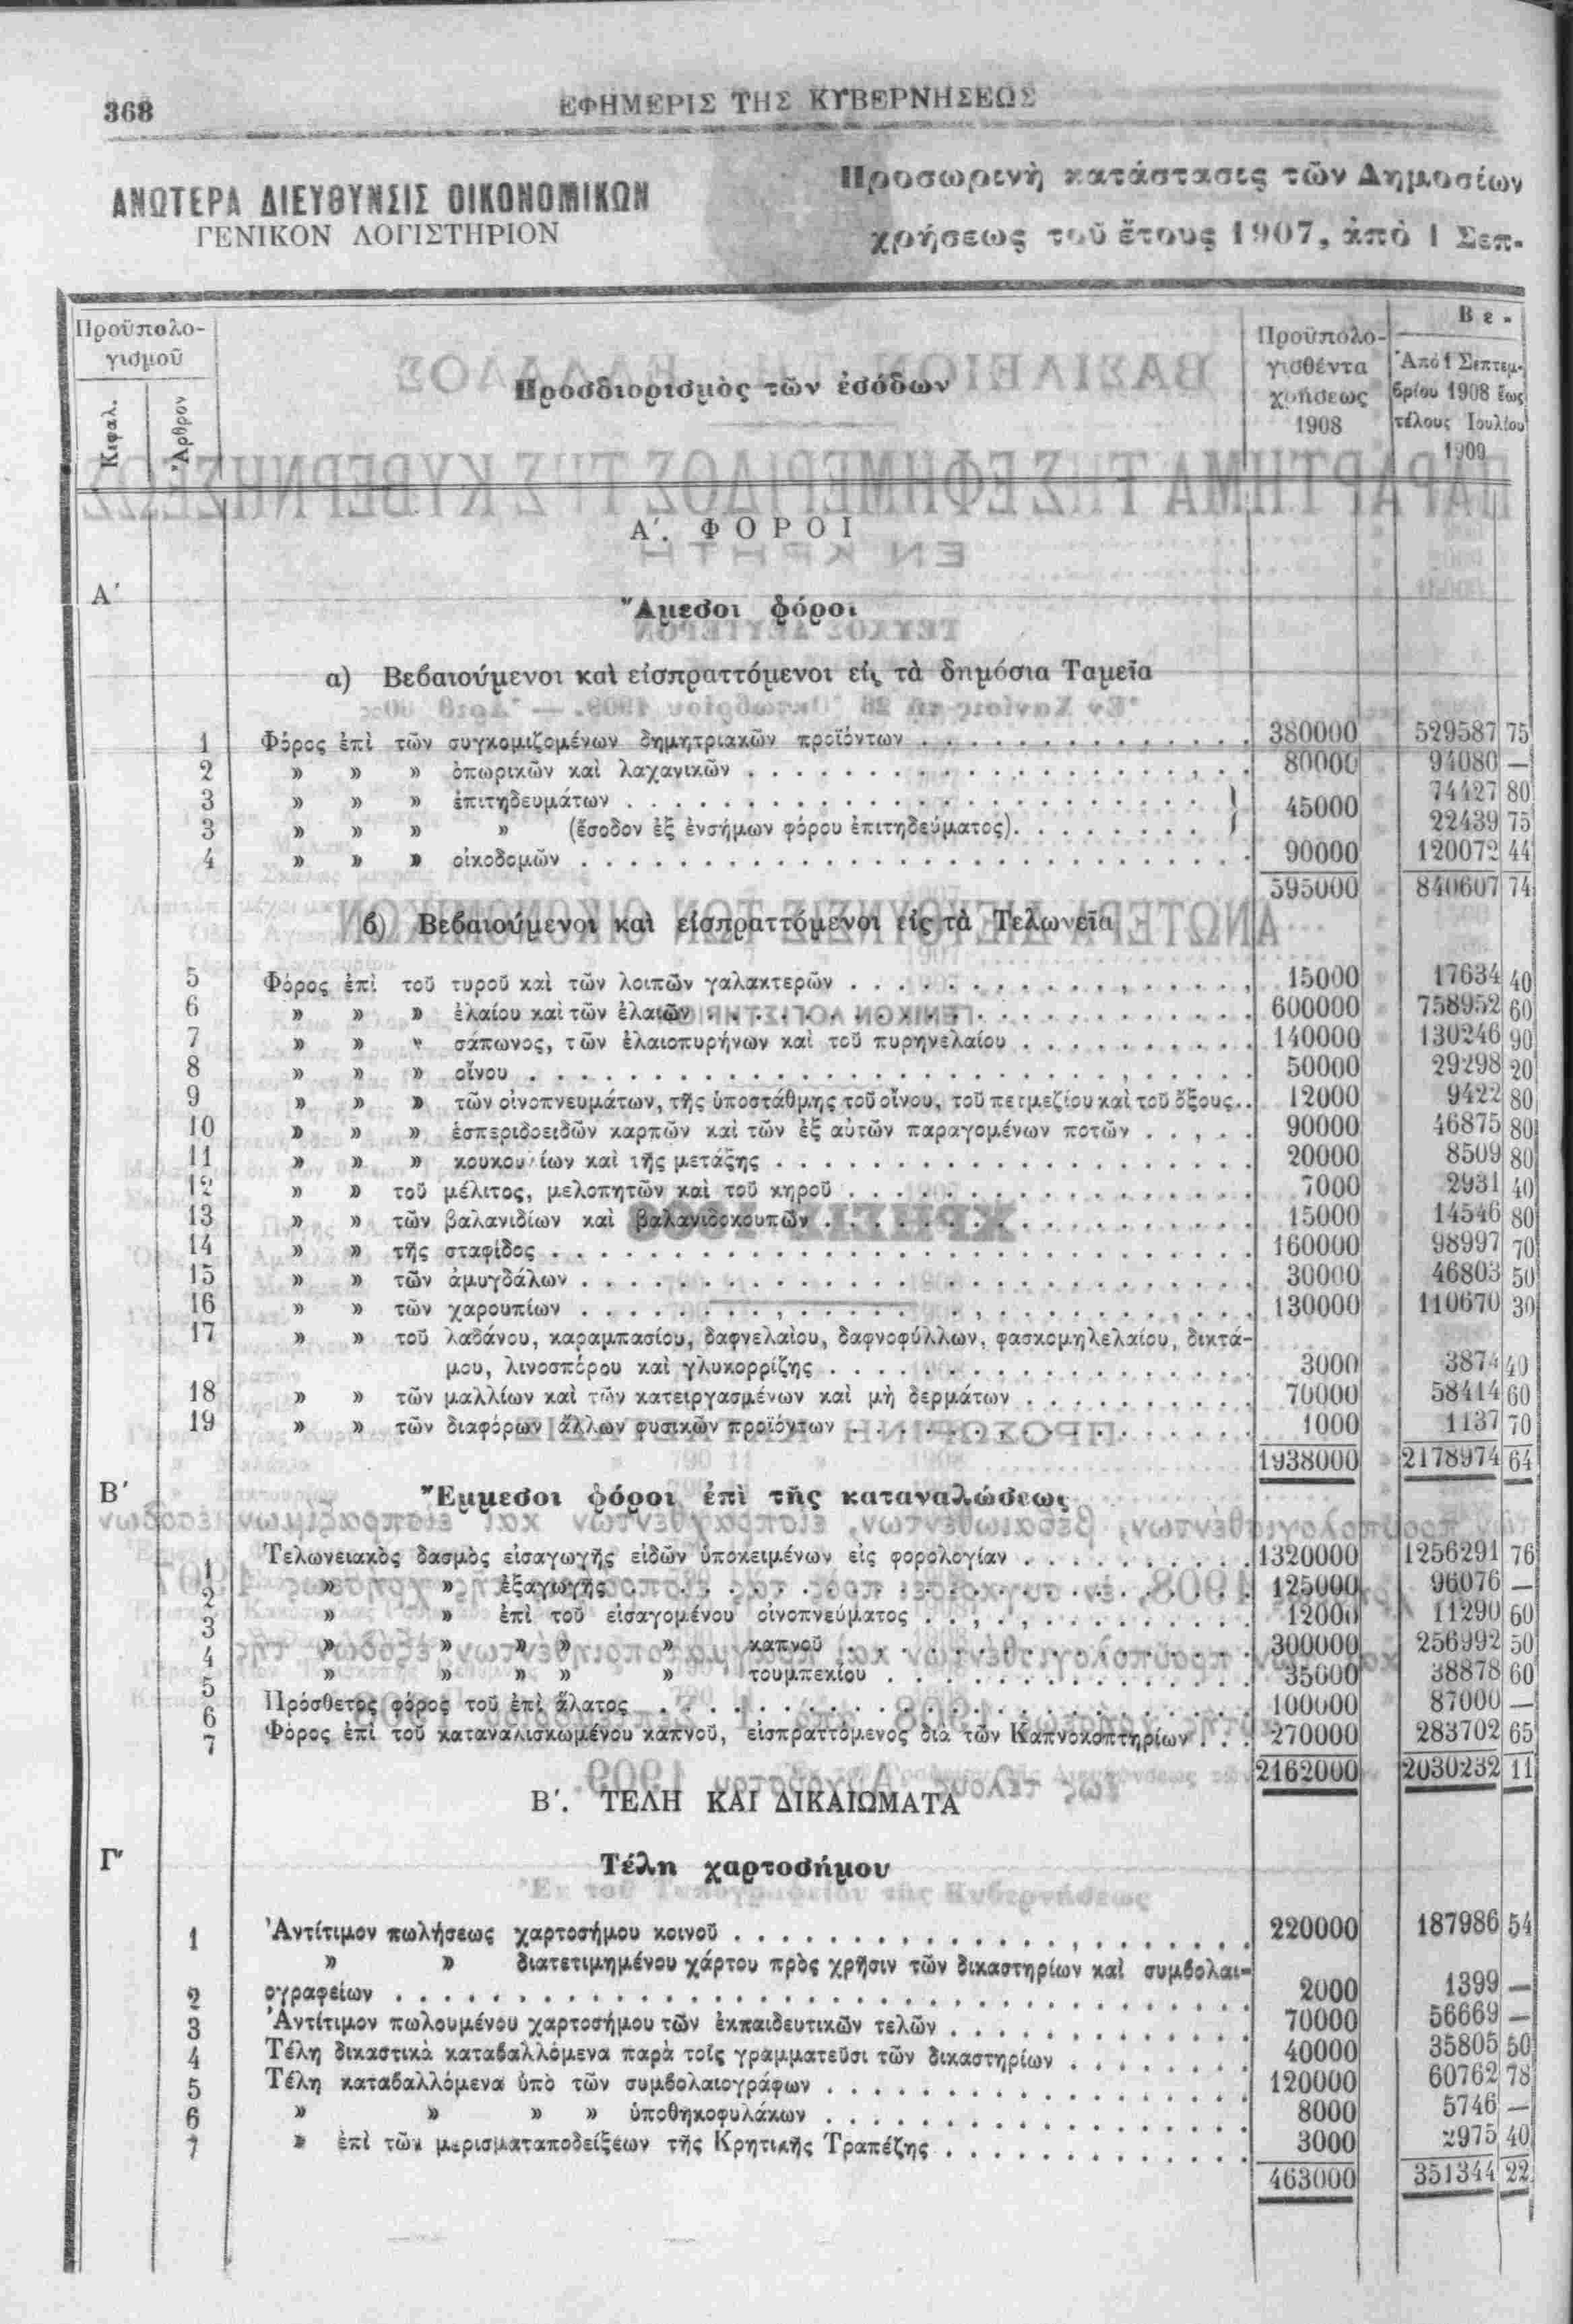 368
ΕΦΗΜΕΡΙΣ ΤΗΣ ΚΥΒΕΡΝΗΣΕΩΣ
ΑΝΩΤΕΡΑ ΔΙΕΥΘΥΝΣΙΣ ΟΙΚΟΝΟΜΙΚΩΝ
ΓΕΝΙΚΟΝ ΛΟΓΙΣΤΗΡΙΟΝ
Προσωρινὴ κατάστασις τῶν Δημοσίων
χρήσεως τοῦ ἔτους 1907, ἀπὸ 1 Σεπ-
Προϋπολο-
γισμοῦ
Κεφαλ.
Ἄρθρον
Προσδιορισμὸς τῶν ἐσόδων
Προϋπολο-
γισθέντα
χρήσεως
1908
Βε-
Ἀπὸ 1 Σεπτεμ-
βρίου 1908 ἕως
τέλους Ἰουλίου
1909
Α΄. ΦΟΡΟΙ
Α΄
Ἄμεσοι φόροι
α) Βεβαιούμενοι καὶ εἰσπραττόμενοι εἰς τὰ δημόσια Ταμεῖα
1 Φόρος ἐπὶ τῶν συγκομιζομένων δημητριακῶν προϊόντων 380000 529587 75
2 » » » ὀπωρικῶν καὶ λαχανικῶν 80000 94080 —
3 » » » ἐπιτηδευμάτων 45000 74427 80
3 » » » » (ἔσοδον ἐξ ἐνσήμων φόρου ἐπιτηδεύματος) 22439 75
4 » » » οἰκοδομῶν 90000 120072 44
595000 840607 74
β) Βεβαιούμενοι καὶ εἰσπραττόμενοι εἰς τὰ Τελωνεῖα
5 Φόρος ἐπὶ τοῦ τυροῦ καὶ τῶν λοιπῶν γαλακτερῶν 15000 17634 40
6 » » » ἐλαίου καὶ τῶν ἐλαιῶν 600000 758952 60
7 » » » σάπωνος, τῶν ἐλαιοπυρήνων καὶ τοῦ πυρηνελαίου 140000 130246 90
8 » » » οἴνου 50000 29298 20
9 » » » τῶν οἰνοπνευμάτων, τῆς ὑποστάθμης τοῦ οἴνου, τοῦ πετμεζίου καὶ τοῦ ὄξους.. 12000 9422 80
10 » » » ἑσπεριδοειδῶν καρπῶν καὶ τῶν ἐξ αὐτῶν παραγομένων ποτῶν 90000 46875 80
11 » » » κουκουλίων καὶ τῆς μετάξης 20000 8509 80
12 » » τοῦ μέλιτος, μελοπητῶν καὶ τοῦ κηροῦ 7000 2931 40
13 » » τῶν βαλανιδίων καὶ βαλανιδοκουπῶν 15000 14546 80
14 » » τῆς σταφίδος 160000 98997 70
15 » » τῶν ἀμυγδάλων 30000 46803 50
16 » » τῶν χαρουπίων 130000 110670 30
17 » » τοῦ λαδάνου, καραμπασίου, δαφνελαίου, δαφνοφύλλων, φασκομηλελαίου, δικτά-
μου, λινοσπόρου καὶ γλυκορρίζης 3000 3874 40
18 » » τῶν μαλλίων καὶ τῶν κατειργασμένων καὶ μὴ δερμάτων 70000 58414 60
19 » » τῶν διαφόρων ἄλλων φυσικῶν προϊόντων 1000 1137 70
1938000 2178974 64
Β΄
Ἔμμεσοι φόροι ἐπὶ τῆς καταναλώσεως
1 Τελωνειακὸς δασμὸς εἰσαγωγῆς εἰδῶν ὑποκειμένων εἰς φορολογίαν 1320000 1256291 76
2 » » ἐξαγωγῆς 125000 96076 —
3 » » ἐπὶ τοῦ εἰσαγομένου οἰνοπνεύματος 12000 11290 60
4 » » » » » καπνοῦ 300000 256992 50
5 » » » » » τουμπεκίου 35000 38878 60
6 Πρόσθετος φόρος τοῦ ἐπὶ ἅλατος 100000 87000 —
7 Φόρος ἐπὶ τοῦ καταναλισκωμένου καπνοῦ, εἰσπραττόμενος διὰ τῶν Καπνοκοπτηρίων 270000 283702 65
2162000 2030232 11
Β΄. ΤΕΛΗ ΚΑΙ ΔΙΚΑΙΩΜΑΤΑ
Γ΄
Τέλη χαρτοσήμου
1 Ἀντίτιμον πωλήσεως χαρτοσήμου κοινοῦ 220000 187986 54
» » διατετιμημένου χάρτου πρὸς χρῆσιν τῶν δικαστηρίων καὶ συμβολαι-
2 ογραφείων 2000 1399 —
3 Ἀντίτιμον πωλουμένου χαρτοσήμου τῶν ἐκπαιδευτικῶν τελῶν 70000 56669 —
4 Τέλη δικαστικὰ καταβαλλόμενα παρὰ τοῖς γραμματεῦσι τῶν δικαστηρίων 40000 35805 50
5 Τέλη καταβαλλόμενα ὑπὸ τῶν συμβολαιογράφων 120000 60762 78
6 » » » » ὑποθηκοφυλάκων 8000 5746 —
7 » ἐπὶ τῶν μερισματαποδείξεων τῆς Κρητικῆς Τραπέζης 3000 2975 40
463000 351344 22